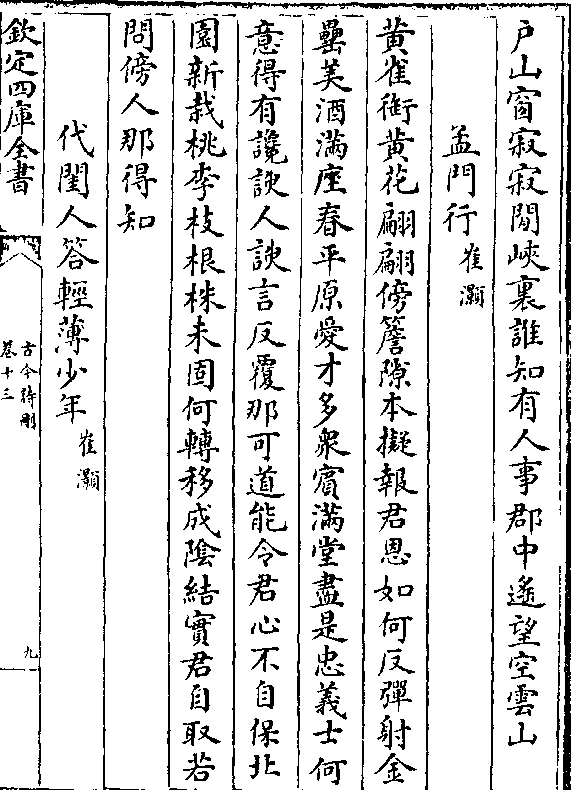 戸山窗寂寂閒峽裏誰知有人事郡中遙望空雲山
孟門行 崔灝
黄雀銜黄花翩翩傍簷隙本擬報君恩如何反彈射金
罍美酒滿座春平原愛才多衆賓滿堂盡是忠義士何
意得有讒諛人諛言反覆那可道能令君心不自保北
園新栽桃李枝根株未固何轉移成陰結實君自取若
問傍人那得知
代閨人答輕薄少年 崔灝
欽定四庫全書
古今詩刪
卷十三
九